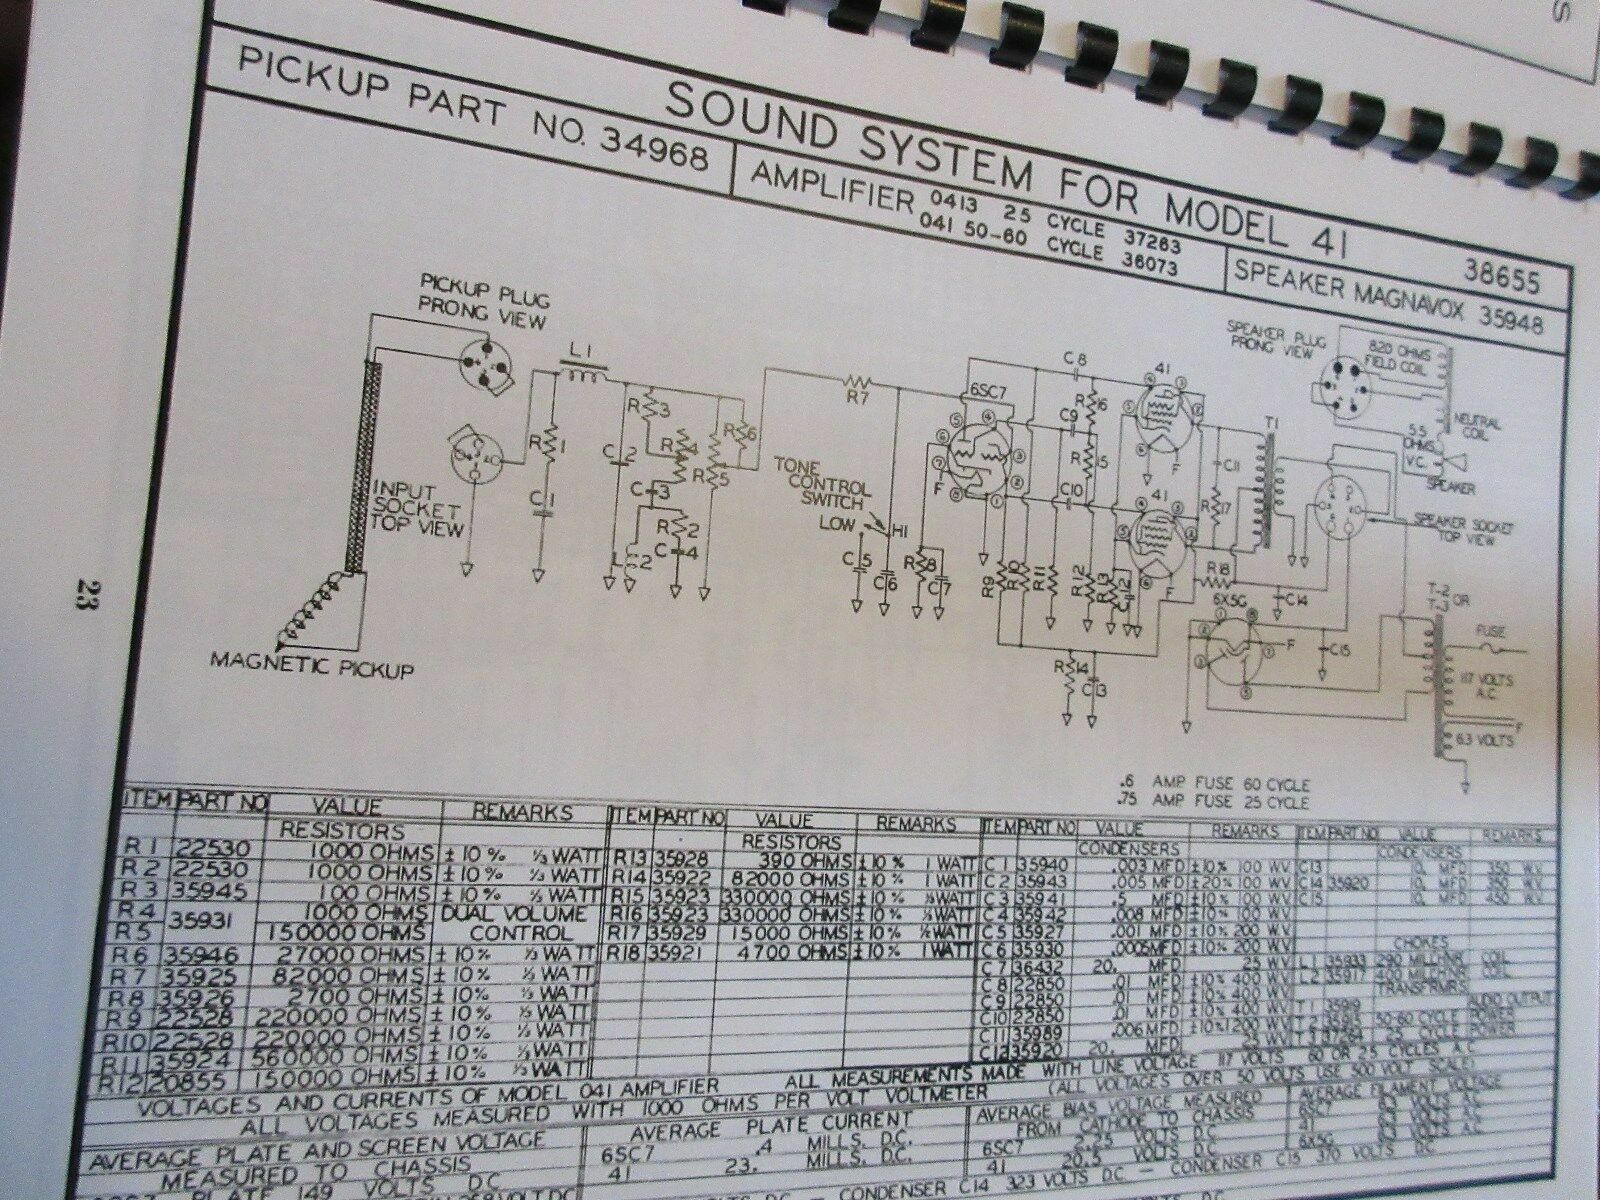 SOUND SYSTEM FOR MODEL 41 38655
PICKUP PART NO. 34968
AMPLIFIER 0413 25 CYCLE 37263
041 50-60 CYCLE 36073
SPEAKER MAGNAVOX 35948
PICKUP PLUG
PRONG VIEW
INPUT
SOCKET
TOP VIEW
MAGNETIC PICKUP
L1
R1
C1
C2
R3
R4
R5
R6
C3
R2
C4
L2
R7
TONE
CONTROL
SWITCH
LOW
HI
C5
C6
R8
C7
6SC7
F
C8
C9
C10
R16
R15
R9
R10
R11
R12
R13
C12
R14
C13
41
F
41
F
C11
R17
T1
R18
C14
6X5G
F
C15
SPEAKER PLUG
PRONG VIEW
820 OHMS
FIELD COIL
NEUTRAL
COIL
5.5
OHMS
V.C.
SPEAKER
SPEAKER SOCKET
TOP VIEW
T-2
OR
T-3
FUSE
117 VOLTS
A.C.
F
6.3 VOLTS
.6 AMP FUSE 60 CYCLE
.75 AMP FUSE 25 CYCLE
23
ITEM PART NO VALUE REMARKS
RESISTORS
R1 22530 1000 OHMS ±10% ⅓ WATT
R2 22530 1000 OHMS ±10% ⅓ WATT
R3 35945 100 OHMS ±10% ⅓ WATT
R4 35931 1000 OHMS DUAL VOLUME
R5 150000 OHMS CONTROL
R6 35946 27000 OHMS ±10% ⅓ WATT
R7 35925 82000 OHMS ±10% ⅓ WATT
R8 35926 2700 OHMS ±10% ⅓ WATT
R9 22528 220000 OHMS ±10% ⅓ WATT
R10 22528 220000 OHMS ±10% ⅓ WATT
R11 35924 560000 OHMS ±10% ⅓ WATT
R12 20855 150000 OHMS ±10% ⅓ WATT
ITEM PART NO VALUE REMARKS
RESISTORS
R13 35928 390 OHMS ±10% 1 WATT
R14 35922 82000 OHMS ±10% 1 WATT
R15 35923 330000 OHMS ±10% WATT
R16 35923 330000 OHMS ±10% WATT
R17 35929 15000 OHMS ±10% ½ WATT
R18 35921 4700 OHMS ±10% 1 WATT
ITEM PART NO VALUE REMARKS
CONDENSERS
C1 35940 .003 MFD ±10% 100 WV
C2 35943 .005 MFD ±20% 100 WV
C3 35941 .5 MFD ±10% 100 WV
C4 35942 .008 MFD ±10% 100 WV
C5 35927 .001 MFD ±10% 200 WV
C6 35930 .0005 MFD ±10% 200 WV
C7 36432 20. MFD 25 WV
C8 22850 .01 MFD ±10% 400 WV
C9 22850 .01 MFD ±10% 400 WV
C10 22850 .01 MFD ±10% 400 WV
C11 35989 .006 MFD ±10% 1200 WV
C12 35920 20. MFD 25 WV
ITEM PART NO VALUE REMARKS
CONDENSERS
C13 10. MFD 350 W.V.
C14 35920 10. MFD 350 W.V.
C15 10. MFD 450 W.V.
CHOKES
L1 35933 290 MILLIHNR COIL
L2 35917 400 MILLIHNR COIL
TRANSFRMRS
T1 AUDIO OUTPUT
50-60 CYCLE POWER
25 CYCLE POWER
VOLTAGES AND CURRENTS OF MODEL 041 AMPLIFIER ALL MEASUREMENTS MADE WITH LINE VOLTAGE 117 VOLTS 60 OR 25 CYCLES A.C.
ALL VOLTAGES MEASURED WITH 1000 OHMS PER VOLT VOLTMETER (ALL VOLTAGES OVER 50 VOLTS USE 500 VOLT SCALE)
AVERAGE PLATE AND SCREEN VOLTAGE
MEASURED TO CHASSIS
PLATE 149 VOLTS D.C.
AVERAGE PLATE CURRENT
6SC7 .4 MILLS. D.C.
41 23. MILLS. D.C.
AVERAGE BIAS VOLTAGE MEASURED
FROM CATHODE TO CHASSIS
6SC7 2.25 VOLTS D.C.
41 20.5 VOLTS D.C.
AVERAGE FILAMENT VOLTAGE
6SC7 VOLTS A.C.
41 VOLTS A.C.
6X5G VOLTS A.C.
CONDENSER C14 323 VOLTS D.C. — CONDENSER C15 370 VOLTS D.C.